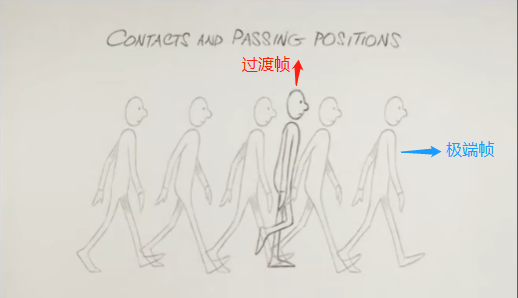 CONTACTS AND PASSING POSITIONS
过渡帧
极端帧